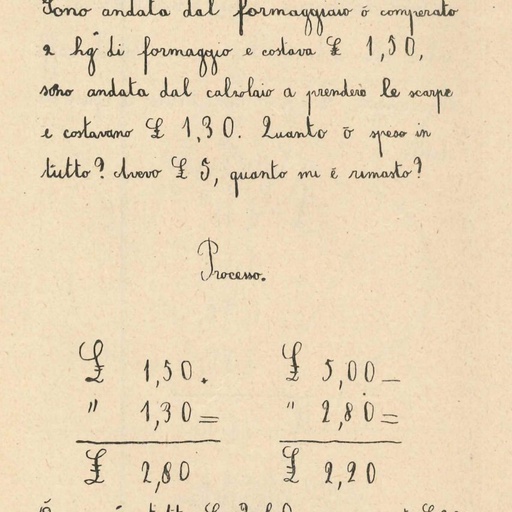 Sono andata dal formaggiaio ō comperato
2 hg di formaggio e costava £ 1,50,
sono andata dal calzolaio a prendere le scarpe
e costavano £ 1,30. Quanto ō speso in
tutto? Avevo £ 5, quanto mi é rimasto?
Processo.
£ 1,50. £ 5,00—
" 1,30= " 2,80=
£ 2,80 £ 2,20